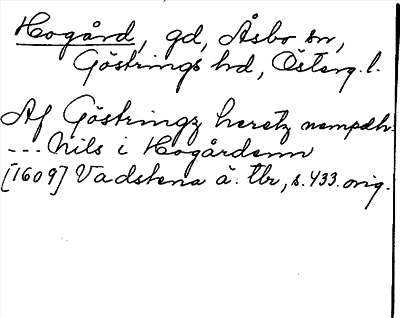 Hogård, gd, Åsbo sn,
Göstrings hd, Österg. l.
Af Göstringz heretz nempdh:
--- Nils i Hogårdenn
[1609] Vadstena ä. tbr, s. 433. orig.